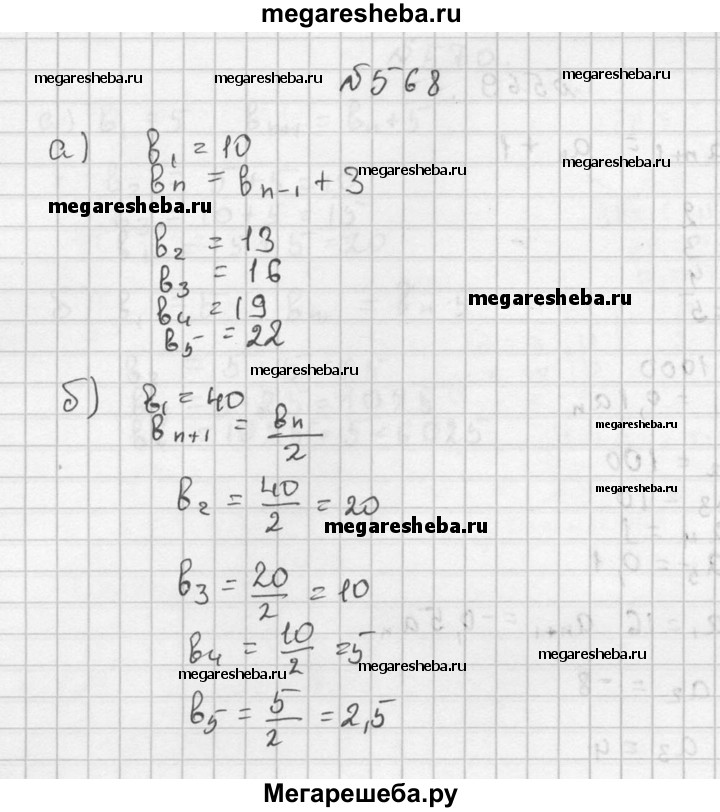 megaresheba.ru
megaresheba.ru megaresheba.ru №568 megaresheba.ru
а) b₁ = 10 megaresheba.ru
bₙ = bₙ₋₁ + 3 megaresheba.ru
megaresheba.ru
b₂ = 13
b₃ = 16
megaresheba.ru
b₄ = 19
b₅ = 22
megaresheba.ru
б) b₁ = 40
bₙ₊₁ = bₙ/2 megaresheba.ru
b₂ = 40/2 = 20 megaresheba.ru
megaresheba.ru
b₃ = 20/2 = 10
b₄ = 10/2 = 5 megaresheba.ru
megaresheba.ru megaresheba.ru
b₅ = 5/2 = 2,5
Мегарешеба.ру